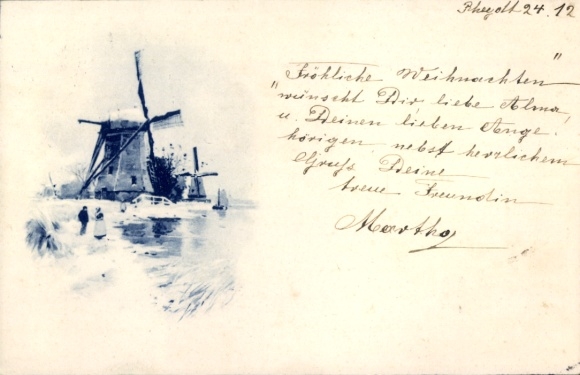 Rheydt 24. 12
"Fröhliche Weihnachten"
wünscht Dir, liebe Alma,
u. Deinen lieben Ange-
hörigen nebst herzlichem
Gruß Deine
treue Freundin
Martha